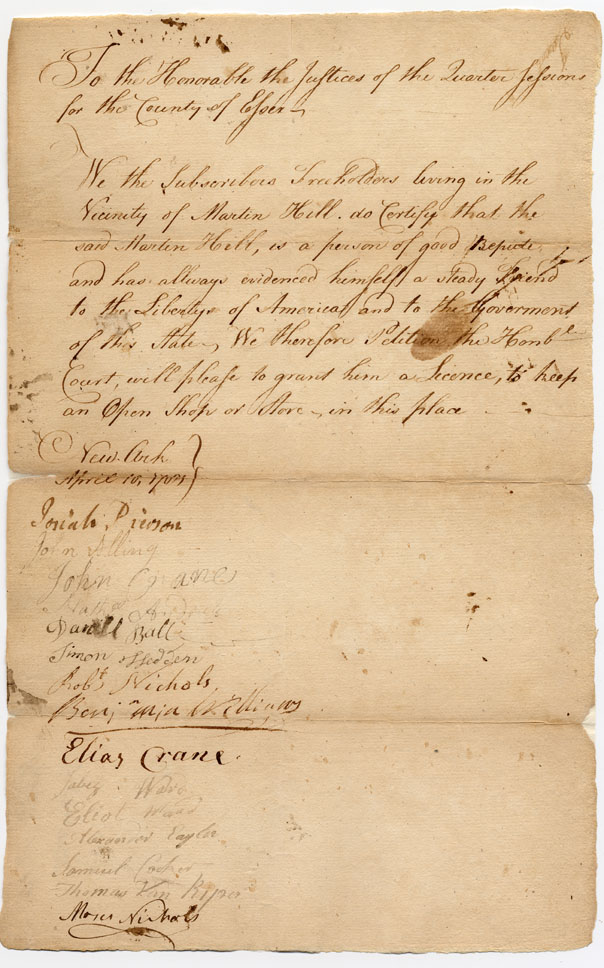 To the Honorable the Justices of the Quarter Sessions
for the County of Essex
We the Subscribers Freeholders living in the
Vicinity of Martin Hill. do Certify that the
said Martin Hill, is a person of good Repute,
and has allways evidenced himself a steady Friend
to the Libertys of America, and to the Goverment
of this State, We therefore Petition the Honble
Court, will please to grant him a Licence, to keep
an Open Shop or Store, in this place
New Ark
April 10,
Josiah Pierson
John Alling
John Crane
Daniel Ball
Simon Hedden
Robt Nichols,
Benjamin Williams
Elias Crane.
Jabez Ward
Eliot Ward
Alexander Eagles
Samuel
Thomas Van Riper
Moses Nichols